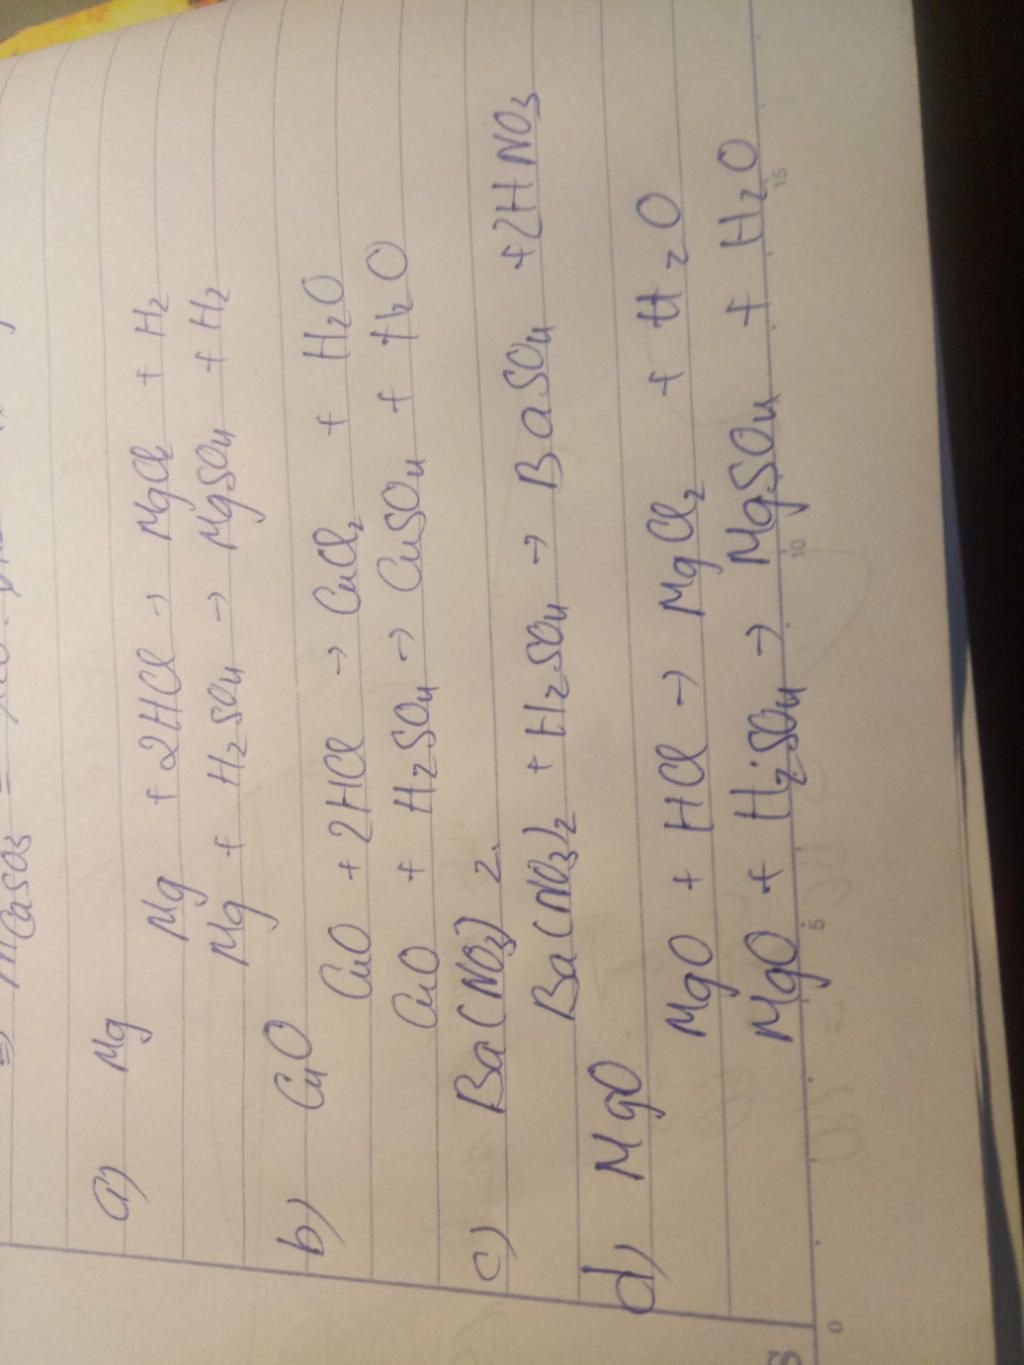 mCaSO3 =
a) Mg
Mg + 2HCl → MgCl2 + H2
Mg + H2SO4 → MgSO4 + H2
b) CuO
CuO + 2HCl → CuCl2 + H2O
CuO + H2SO4 → CuSO4 + H2O
c) Ba(NO3)2.
Ba(NO3)2 + H2SO4 → BaSO4 + 2HNO3
d) MgO
MgO + HCl → MgCl2 + H2O
MgO + H2SO4 → MgSO4 + H2O
S 0 5 10 15